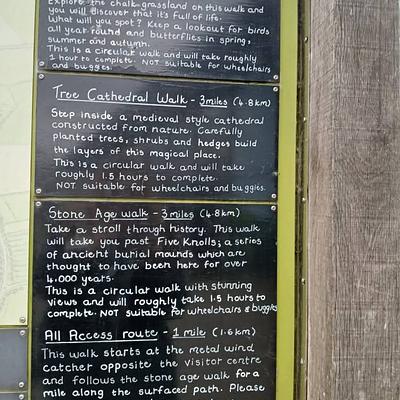 Explore the chalk grassland on this walk and
you will discover that it's full of life.
What will you spot? Keep a lookout for birds
all year round and butterflies in spring,
summer and autumn.
This is a circular walk and will take roughly
1 hour to complete. NOT suitable for wheelchairs
and buggies.
Tree Cathedral Walk - 3miles (4.8km)
Step inside a medieval style cathedral
constructed from nature. Carefully
planted trees, shrubs and hedges build
the layers of this magical place.
This is a circular walk and will take
roughly 1.5 hours to complete.
NOT suitable for wheelchairs and buggies.
Stone Age walk - 3 miles (4.8km)
Take a stroll through history. This walk
will take you past Five Knolls; a series
of ancient burial mounds which are
thought to have been here for over
4,000 years.
This is a circular walk with stunning
views and will roughly take 1.5 hours to
complete. NOT suitable for wheelchairs & buggies
All Access route - 1 mile (1.6km)
This walk starts at the metal wind
catcher opposite the visitor centre
and follows the stone age walk for a
mile along the surfaced path. Please